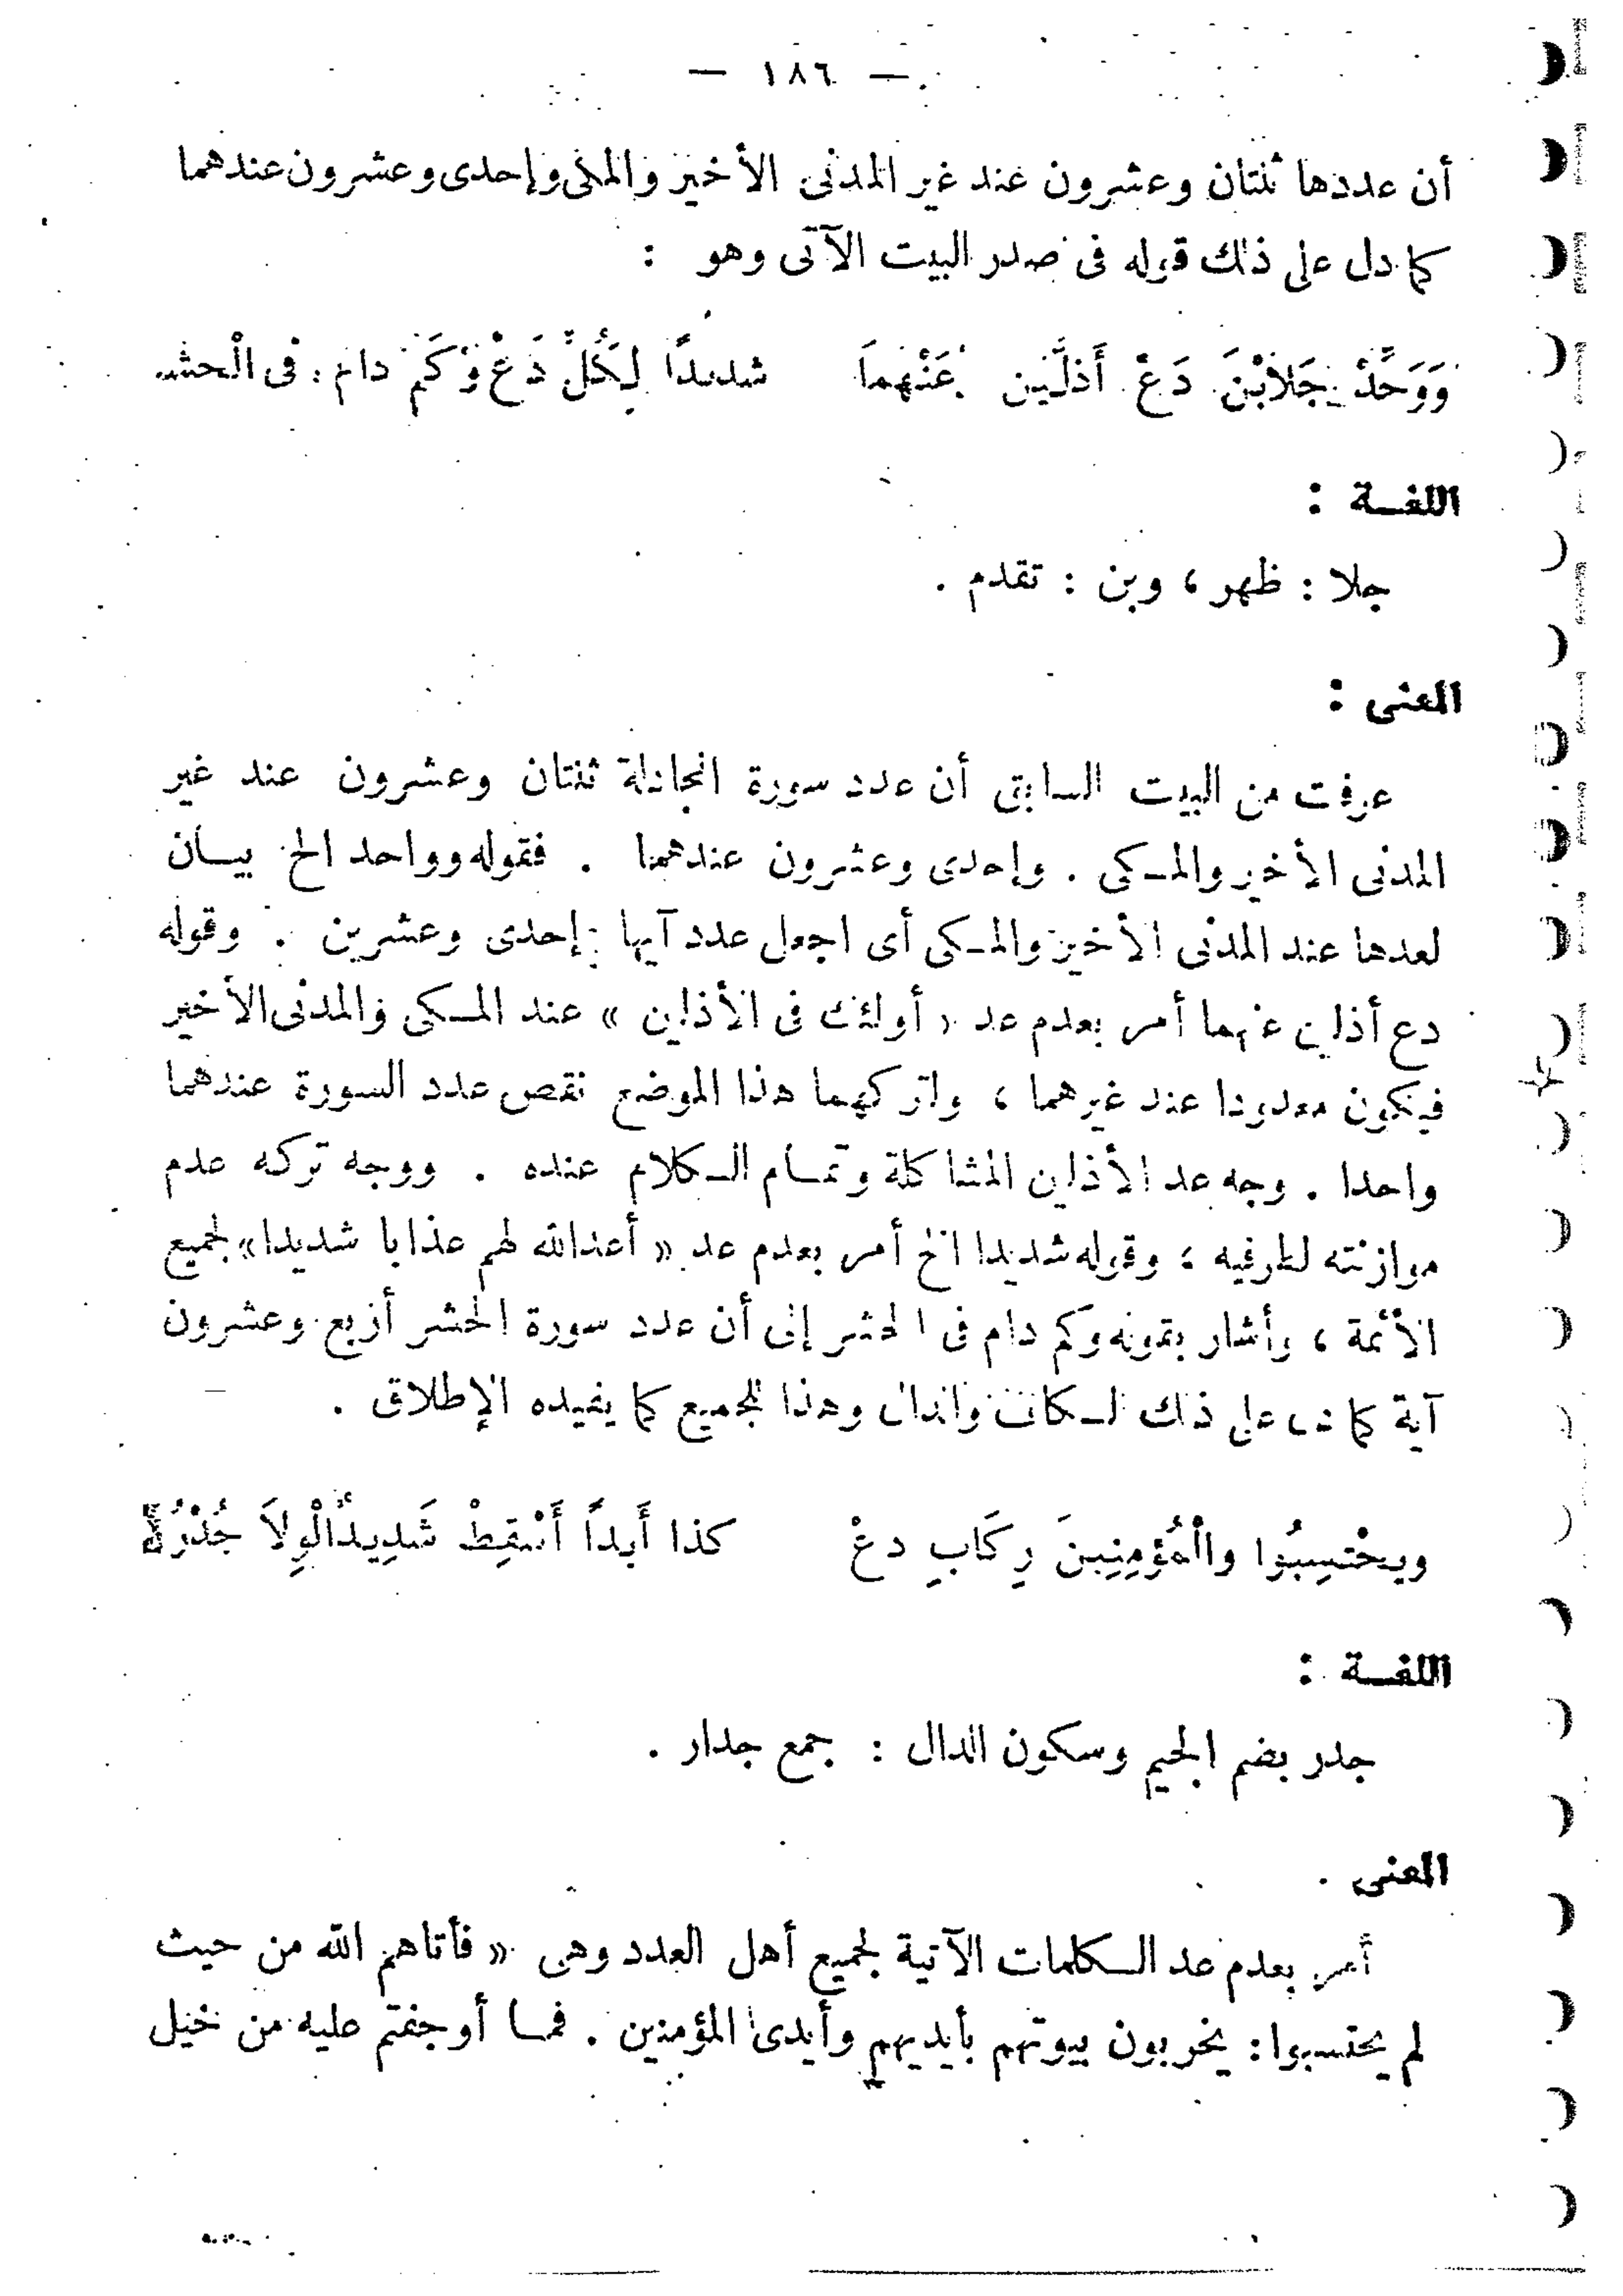 — ١٨٦ —
أن عددها ثنتان وعشرون عند غير المدنى الأخير والمكى وإحدى وعشرون عندهما
كما دل على ذلك قوله فى صدر البيت الآتى وهو :
وَوَحِّدْ جَلاَبْنَ دَعْ أَذلِّين عَنْهمَا شديدًا لِكُلٍّ دَعْ وَكَم دام فى الْحشر
اللغـة :
جلا : ظهر ، وبن : تقدم .
المعنى :
عرفت من البيت السابق أن عدد سورة المجادلة ثنتان وعشرون عند غير
المدنى الأخير والمـكى . وإحدى وعشرون عندهما . فقوله وواحد الخ بيـان
لعدها عند المدنى الأخير والمـكى أى اجعل عدد آيها إحدى وعشرين . وقوله
دع أذلين عنهما أمر بعدم عد « أولئك فى الأذلين » عند المـكى والمدنى الأخير
فيكون معدودا عند غيرهما ، ولتركهما هذا الموضع نقص عدد السورة عندهما
واحدا . وجه عد الأذلين المشاكلة وتمـام الـكلام عنده . ووجه تركه عدم
موازنته لطرفيه ، وقوله شديدا الخ أمر بعدم عد « أعد الله لهم عذابا شديدا » لجميع
الأئمة ، وأشار بقوله وكم دام فى الحشر إلى أن عدد سورة الحشر أربع وعشرون
آية كما دل على ذلك الـكاف والدال وهذا للجميع كما يفيده الإطلاق .
ويحْتسِبُوا واالْمُؤمِنِينَ رِكَابٍ دعْ كذا أَبداً أَسْقِطْ شَدِيدٌ الْوِلاَ جُدْرُ
اللغـة :
جدر بضم الجيم وسكون الدال : جمع جدار .
المعنى .
أمر بعدم عد الـكلمات الآتية لجميع أهل العدد وهى « فأتاهم الله من حيث
لم يحتسبوا : يخربون بيوتهم بأيديهم وأيدى المؤمنين . فمـا أوجفتم عليه من خيل